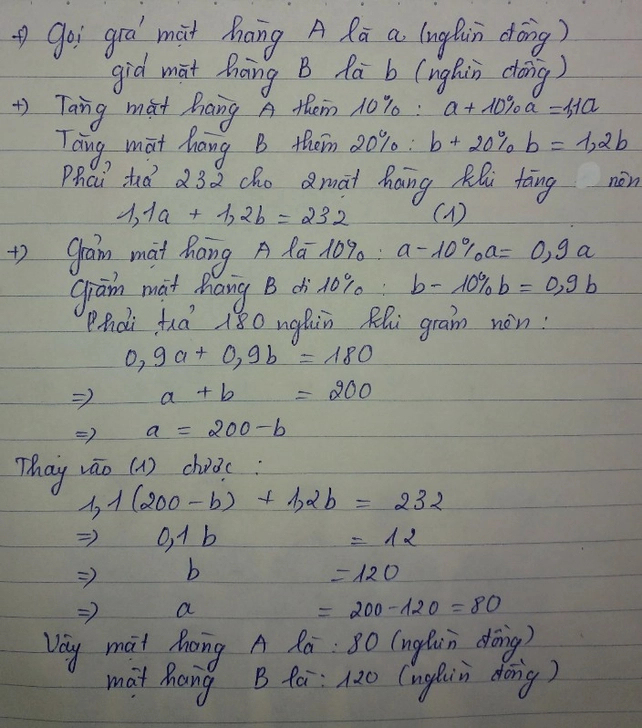 +) Gọi giá mặt hàng A là a (nghìn đồng)
giá mặt hàng B là b (nghìn đồng)
+) Tăng mặt hàng A thêm 10% : a + 10%a = 1,1a
Tăng mặt hàng B thêm 20% : b + 20% b = 1,2b
Phải trả 232 cho 2 mặt hàng khi tăng nên
1,1a + 1,2b = 232 (1)
+) Giảm mặt hàng A là 10% : a - 10%a = 0,9a
Giảm mặt hàng B đi 10% : b - 10%b = 0,9b
Phải trả 180 nghìn khi giảm nên :
0,9a + 0,9b = 180
=> a + b = 200
=> a = 200 - b
Thay vào (1) được :
1,1(200 - b) + 1,2b = 232
=> 0,1b = 12
=> b = 120
=> a = 200 - 120 = 80
Vậy mặt hàng A là : 80 (nghìn đồng)
mặt hàng B là : 120 (nghìn đồng)